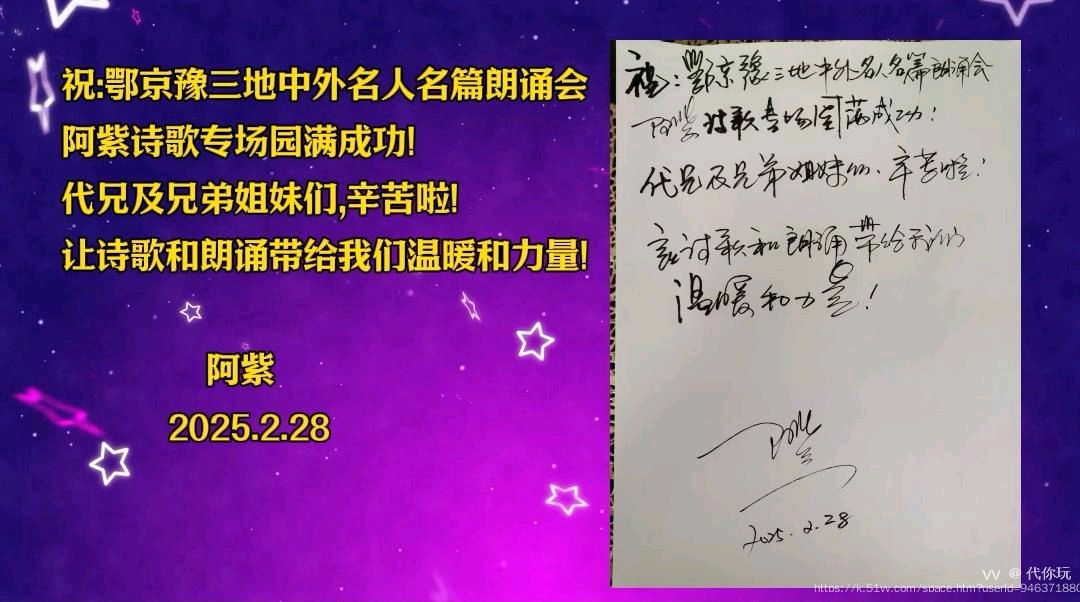 祝:鄂京豫三地中外名人名篇朗诵会
阿紫诗歌专场园满成功!
代兄及兄弟姐妹们,辛苦啦!
让诗歌和朗诵带给我们温暖和力量!
阿紫
2025.2.28
祝:鄂京豫三地中外名人名篇朗诵会
阿紫诗歌专场园满成功!
代兄及兄弟姐妹们、辛苦啦!
让诗歌和朗诵带给我们
温暖和力量!
阿紫
2025.2.28
@ 代你玩
https://k.51w.com/space.htm?userid=946371880